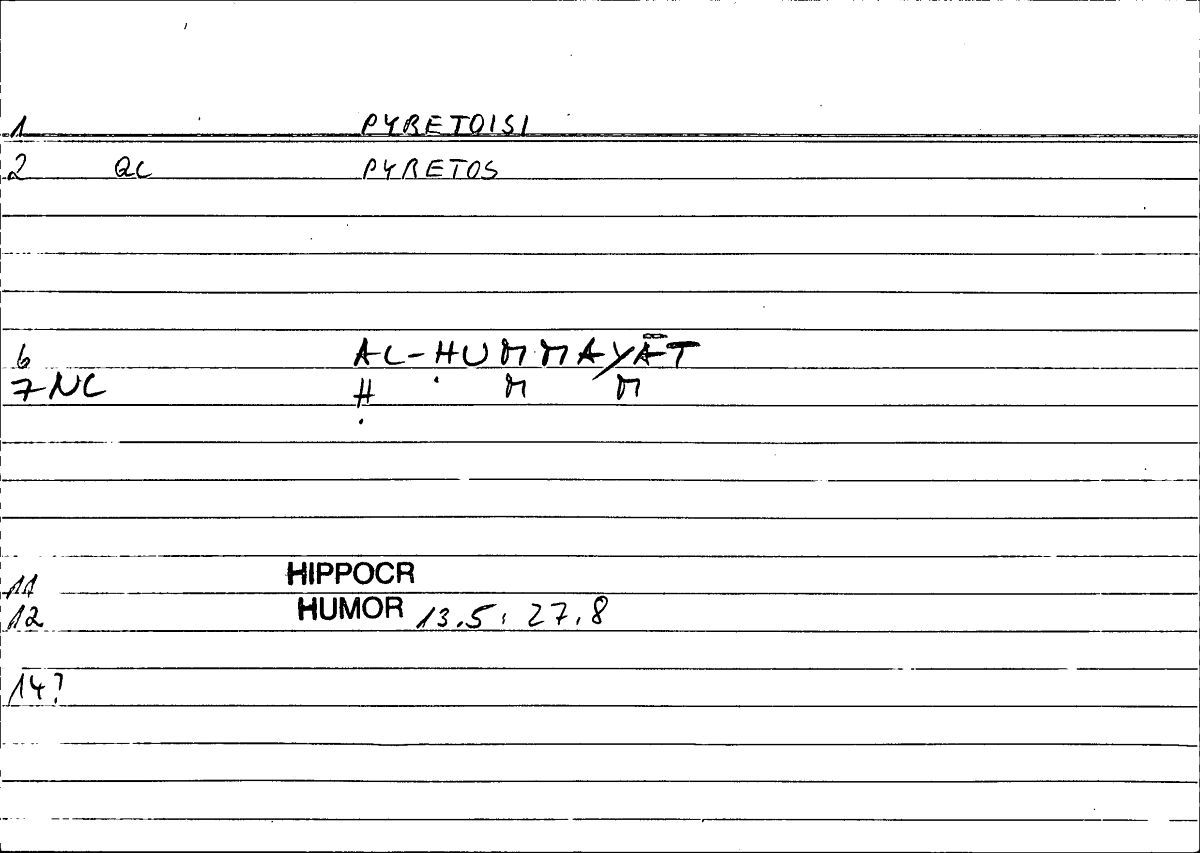 1 PYRETOISI
2 QC PYRETOS
6 AL-ḤUMMAYĀT
7 NC Ḥ M M
11 HIPPOCR
12 HUMOR 13.5, 27.8
14?